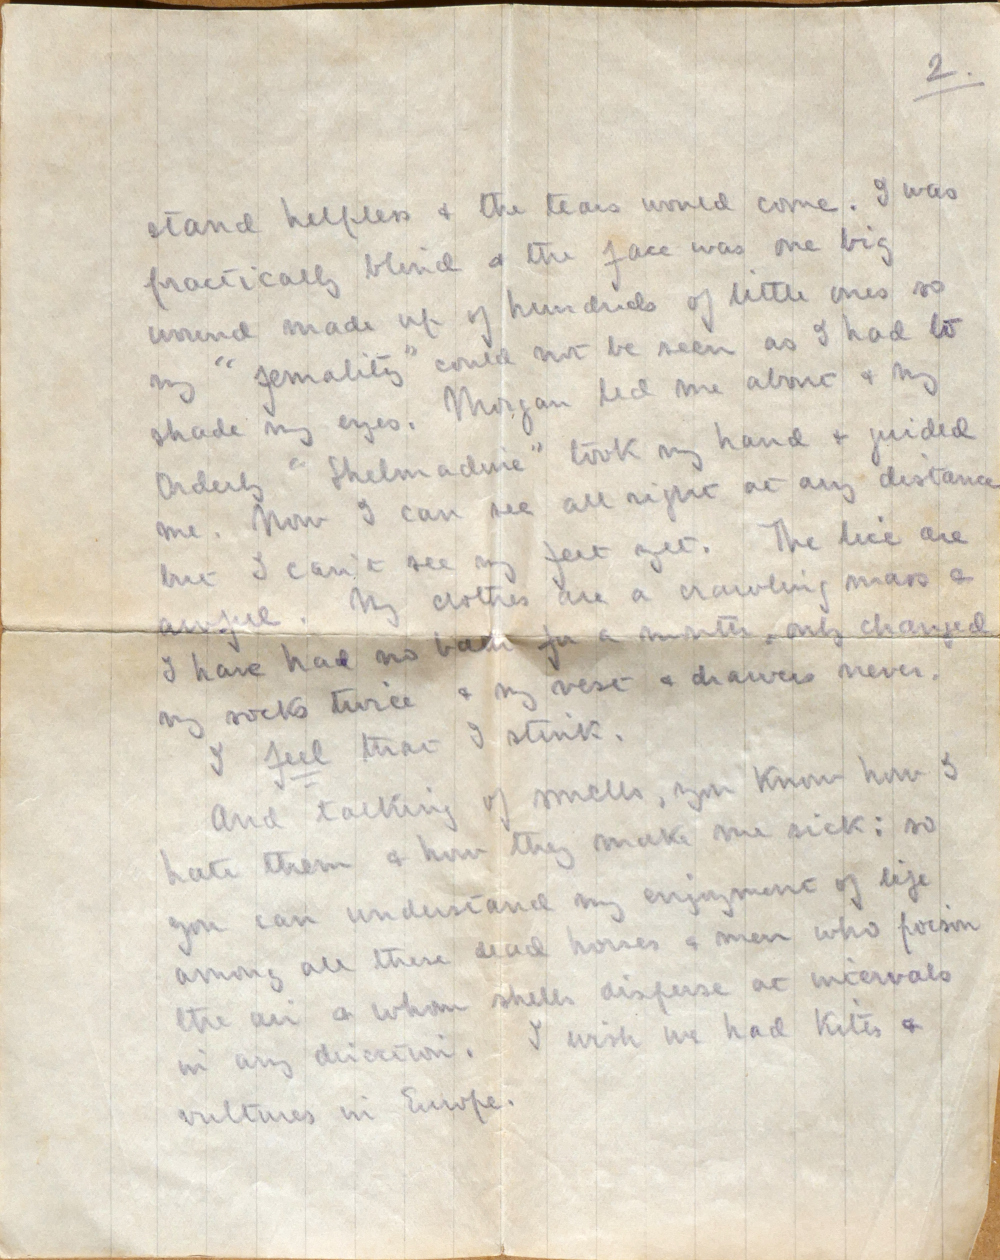 2.
stand helpless & the tears would come. I was
practically blind & the face was one big
wound made up of hundreds of little ones so
my "femality" could not be seen as I had to
shade my eyes. Morgan led me about & my
Orderly "Shelmadine" took my hand & guided
me. Now I can see all right at any distance
but I can't see my feet yet. The lice are
awful. My clothes are a crawling mass &
I have had no bath for a month, only changed
my socks twice & my vest & drawers never.
I feel that I stink.
And talking of smells, you know how I
hate them & how they make me sick: so
you can understand my enjoyment of life
among all these dead horses & men who poison
the air & whom shells disperse at intervals
in any direction. I wish we had Kites &
vultures in Europe.